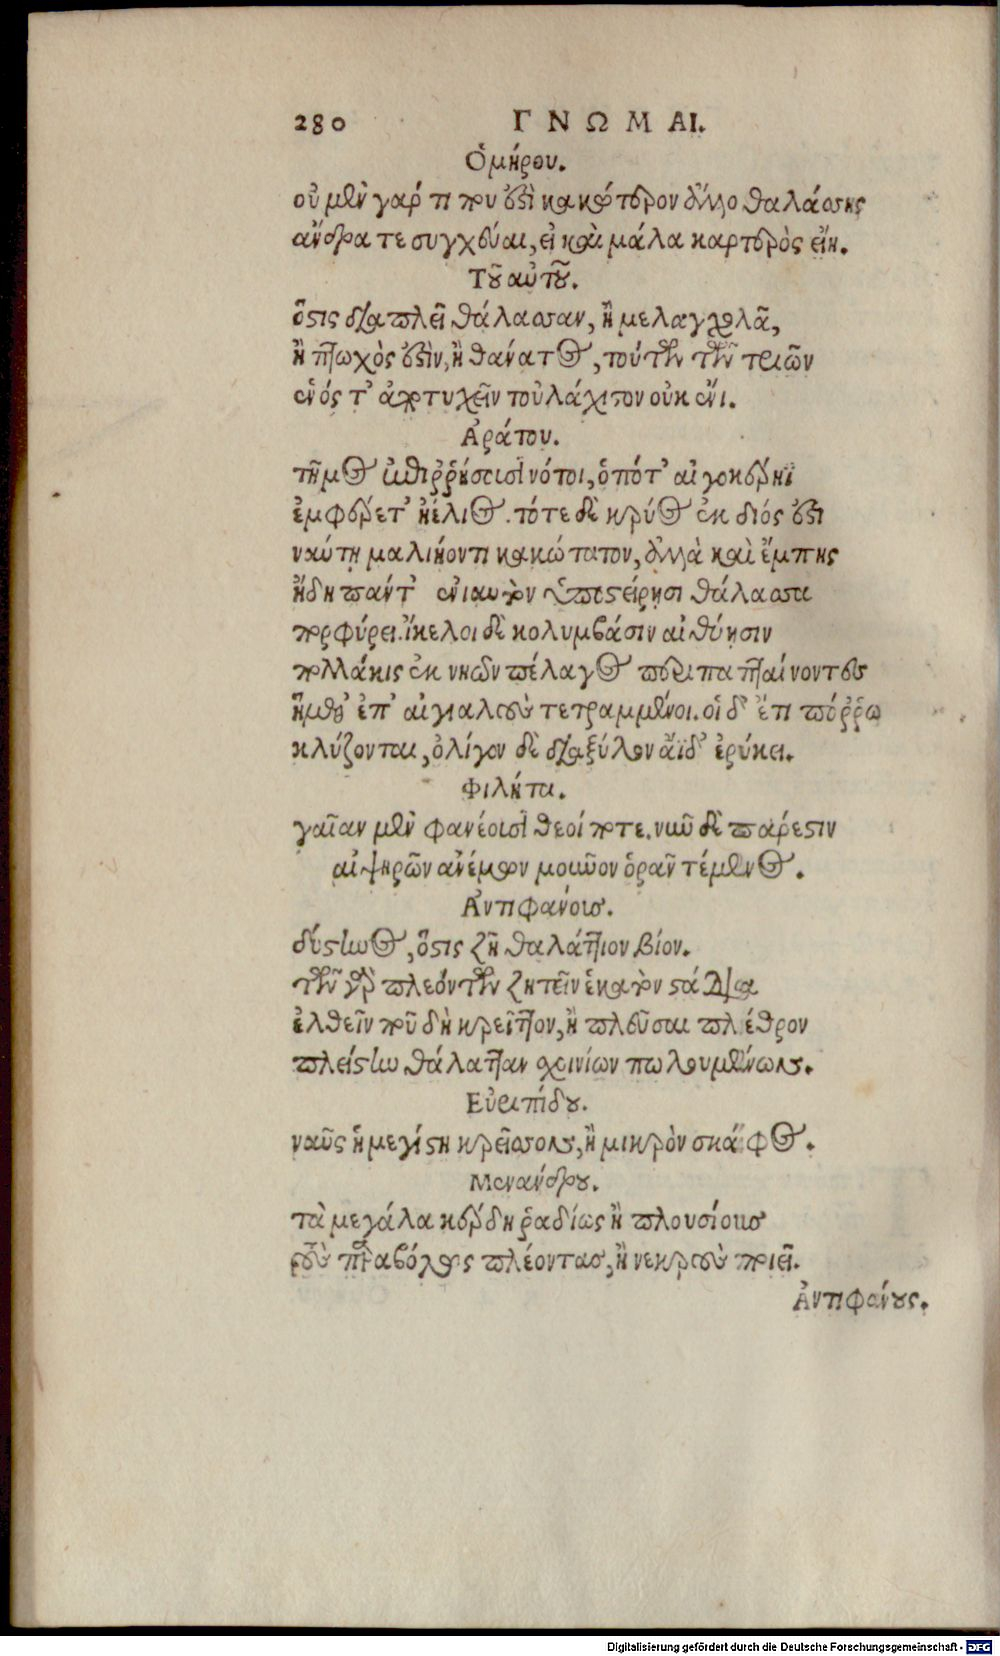 280 ΓΝΩΜΑΙ.
Ὁμήρου.
οὐ μὲν γάρ τι που ἐστὶ κακώτερον ἄλλο θαλάσσης
ἄνδρα τε συγχεῦαι, εἰ καὶ μάλα καρτερὸς εἴη.
Τοῦ αὐτοῦ.
ὅστις διαπλεῖ θάλασσαν, ἢ μελαγχολᾶ,
ἢ πτωχὸς ἐστὶν, ἢ θανατᾶ, τούτων τῶν τριῶν
ἑνός τ' ἀποτυχεῖν τοὐλάχιτον οὐκ ἔνι.
Ἀράτου.
τῆμος ἐπιῤῥήσσεισι νότοι, ὁπότ' αἰγοκερῆϊ
ἐμφέρετ' ἠέλιος. τότε δὲ κρύος ἐκ διός ἐστι
ναύτῃ μαλκιόοντι κακώτατον, ἀλλὰ καὶ ἔμπης
ἤδη πάντ' ἐνιαυτὸν ὑπὸ στείρῃσι θάλασσα
πορφύρει. ἴκελοι δὲ κολυμβάσιν αἰθύῃσιν
πολλάκις ἐκ νηῶν πέλαγος περιπαπταίνοντες
ἥμεθ' ἐπ' αἰγιαλοὺς τετραμμένοι. οἱ δ' ἔτι πόῤῥω
κλύζονται, ὀλίγον δὲ διὰ ξύλον ἄϊδ' ἐρύκει.
Φιλήτα.
γαῖαν μὲν φανέουσι θεοί ποτε. νῦν δὲ πάρεστιν
αἰψηρῶν ἀνέμων μοῦνον ὁρᾶν τέμενος.
Ἀντιφάνους.
δύστηνος, ὅστις ζῇ θαλάττιον βίον.
τῶν γὰρ πλεόντων ζητεῖν ἑκατὸν στάδια
ἐλθεῖν που δὴ κρεῖττον, ἢ πλεῦσαι πλέθρον
πλεῖς τὴν θάλατταν σχοινίων πωλουμένων.
Εὐριπίδου.
ναῦς ἡ μεγίστη κρεῖσσον, ἢ μικρὸν σκάφος.
Μενάνδρου.
τὰ μεγάλα κέρδη ῥαδίως ἢ πλουσίους
τοὺς παραβόλως πλέοντας, ἢ νεκροὺς ποιεῖ.
Ἀντιφάνους.
Digitalisierung gefördert durch die Deutsche Forschungsgemeinschaft - DFG